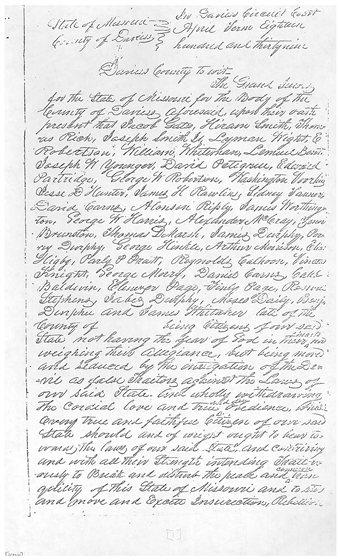 State of Missouri In Daviess Circuit Court
County of Daviess April Term Eighteen
hundred and thirty nine
Daviess County to wit
The Grand Jurors
for the State of Missouri for the Body of the
County of Daviess aforesaid upon their oath
present that Jacob Gates, Hiram Smith, Thom
as Rich, Joseph Smith Jr, Lyman Wight, E
Robertson, William Whiteman, Lemuel
Joseph W Younger, David Pettigrew, Edward
Partridge, George W Robertson, Washington
Jesse D Hunter, James H Rawlins, Sidney Tanner
David Carns, Alonson Ripley, James Worthing
ton, George W Harris, Alexander McCray,
Brunston, Thomas James Durphy, Per
ry Durphy, George Hinkle, Arthur Morrison, Elias
Higby, Parly P Pratt, Reynolds Calhoon, Vincen
Knight, George Morey, Daniel Carns, Caleb
Baldwin, Ebenezer Page, Finly Page, Roswel
Stephens, Jabez Durphy, Moses Daily, Benj
Durphee and James Whitaker late of the
County of being Citizens of our said
State not having the fear of God in their hearts nor
weighing their Allegiance, but being moved
and Seduced by the instigation of the De-
vil as false Traitors against the Laws of
our said State And wholly withdrawing
the Cordial love and true obedience which
Every true and faithful Citizen of our said
State should and of wright ought to bear to-
wards the laws of our said State And Contriving
and with all their Strength intending Trait
ously to Break and disturb the peace and tran
quility of this State of Missouri and to stir
and move and Excite Insurrection, Rebellion